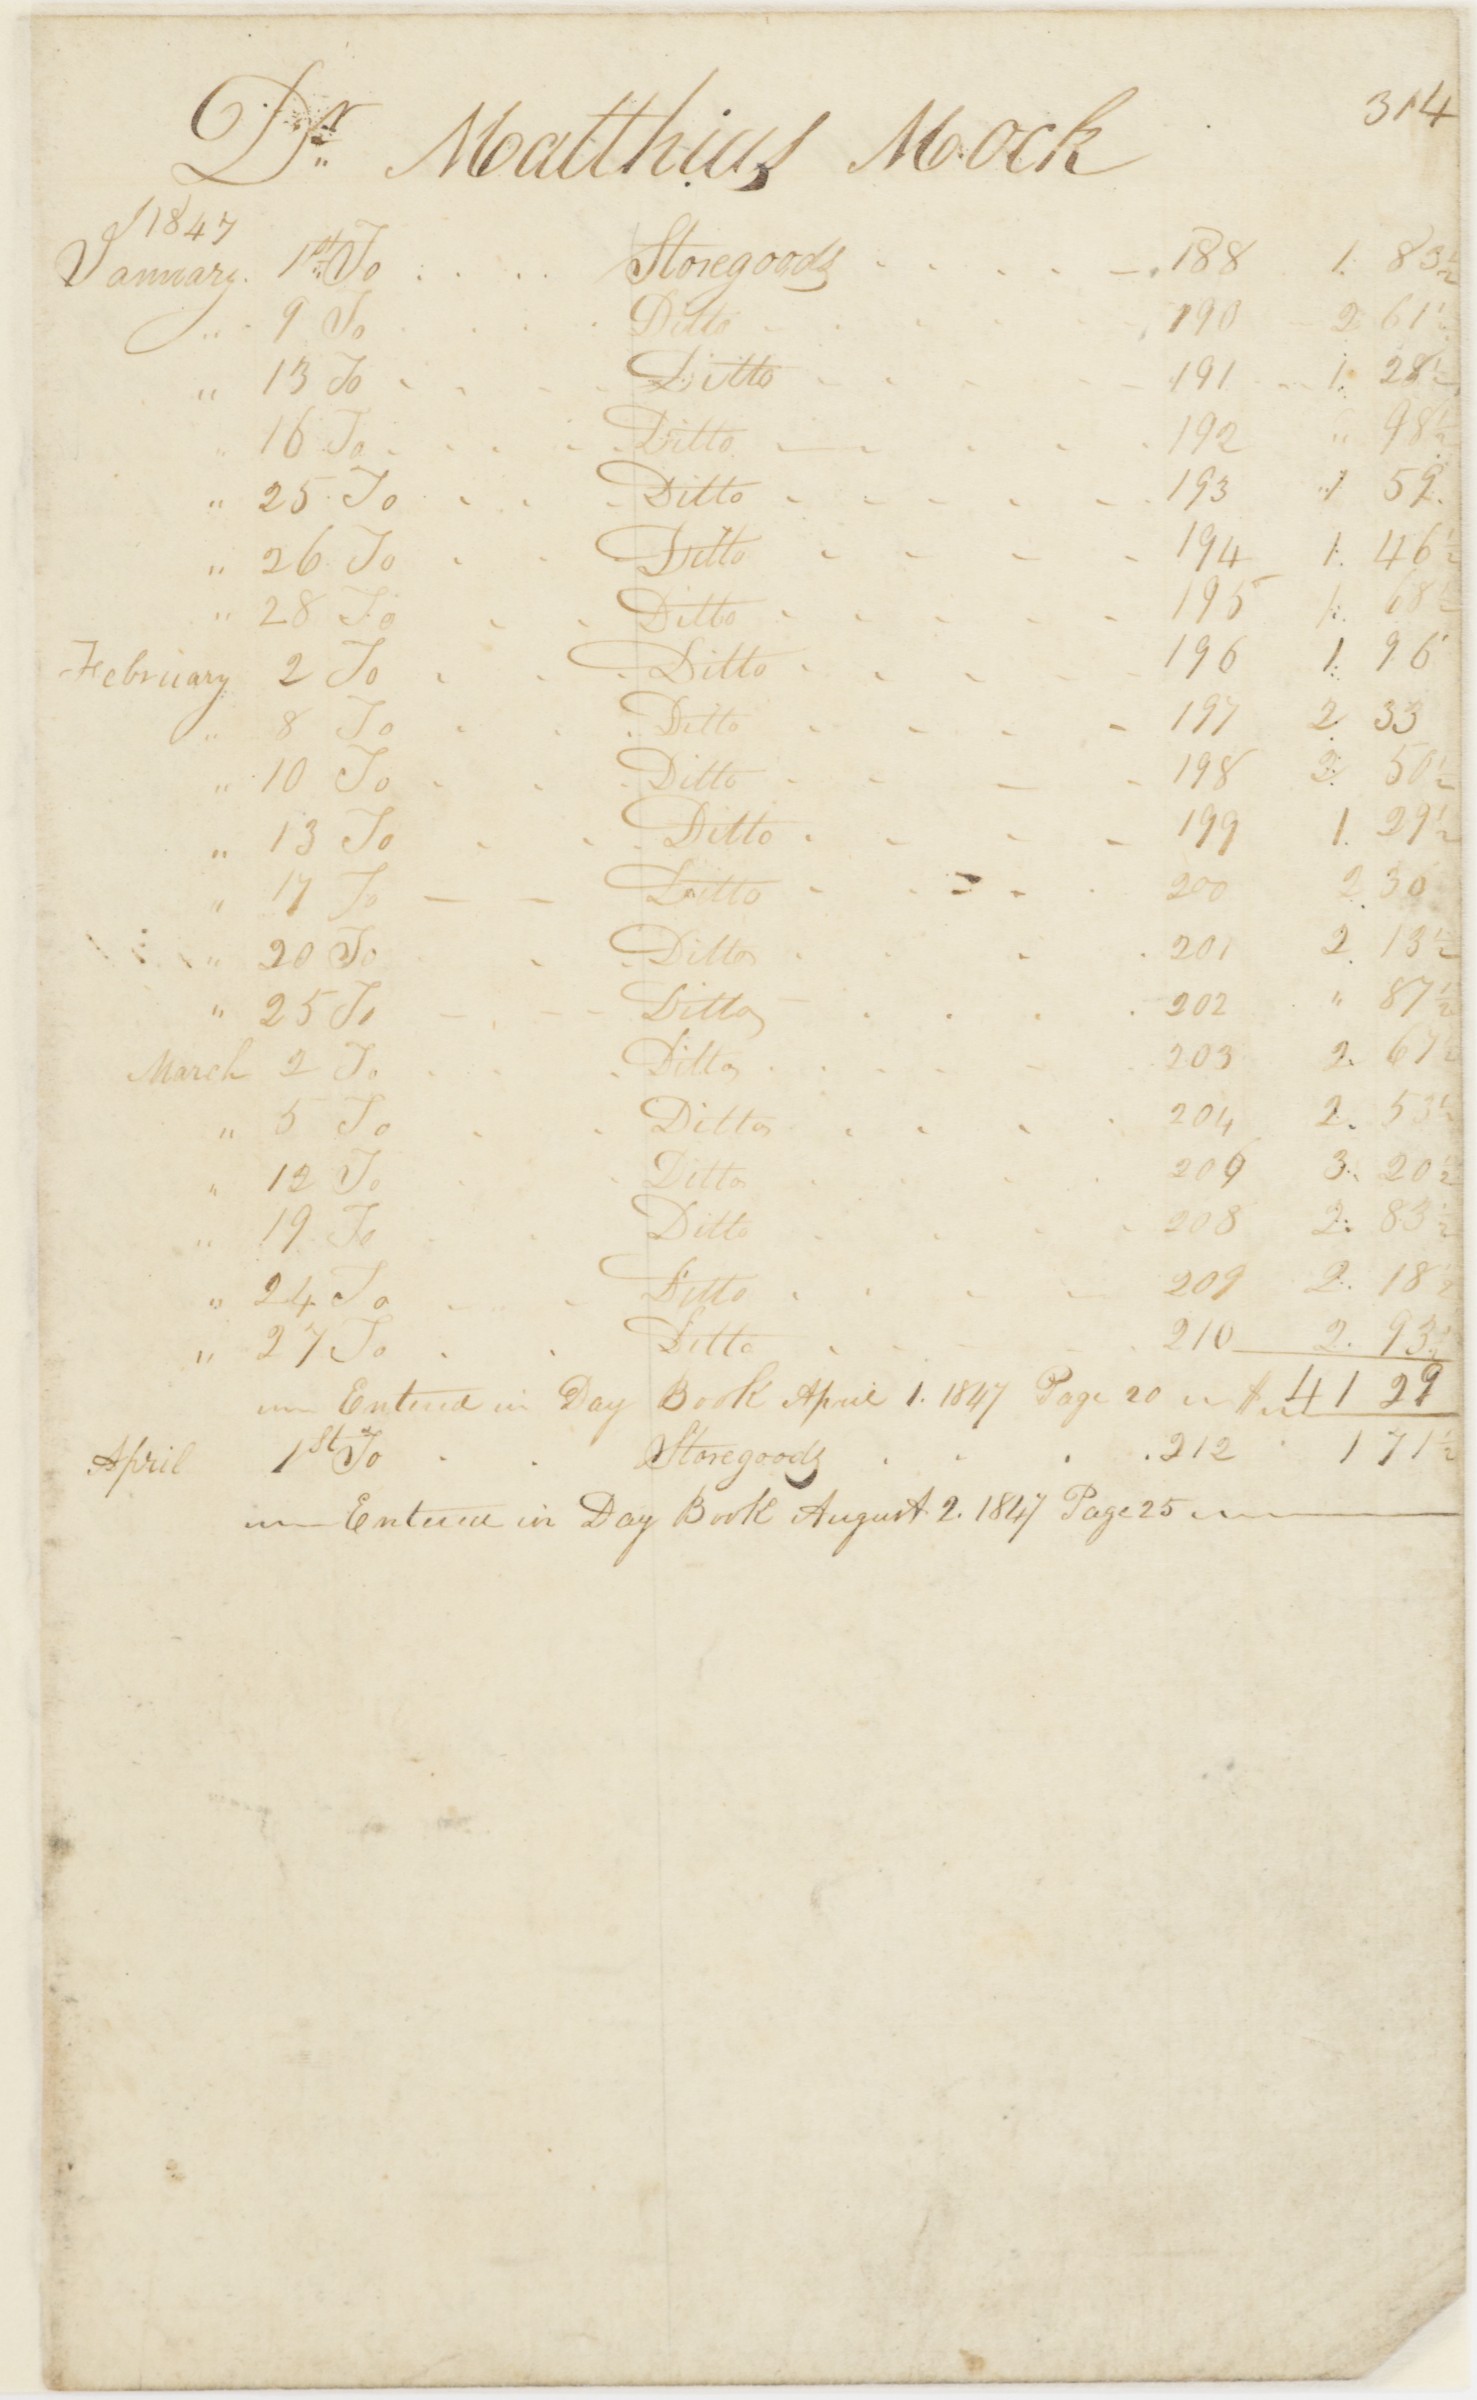 314
Dr Matthias Mock
1847
January 1st To Storegoods 188 1. 83½
" 9 To Ditto 190 2 61½
" 13 To Ditto 191 1. 28½
" 16 To Ditto 192 " 98½
" 25 To Ditto 193 1 59.
" 26 To Ditto 194 1. 46½
" 28 To Ditto 195 1. 68½
February 2 To Ditto 196 1. 96
" 8 To Ditto 197 2 33
" 10 To Ditto 198 2. 50½
" 13 To Ditto 199 1. 29½
" 17 To Ditto 200 2. 30
" 20 To Ditto 201 2. 13½
" 25 To Ditto 202 " 87½
March 2 To Ditto 203 2. 67½
" 5 To Ditto 204 2. 53½
" 12 To Ditto 206 3. 20½
" 19 To Ditto 208 2. 83½
" 24 To Ditto 209 2. 18½
" 27 To Ditto 210 2. 93½
Entered in Day Book April 1. 1847 Page 20 $ 41 29
April 1st To Storegoods 212 1 71½
Entered in Day Book August 2. 1847 Page 25